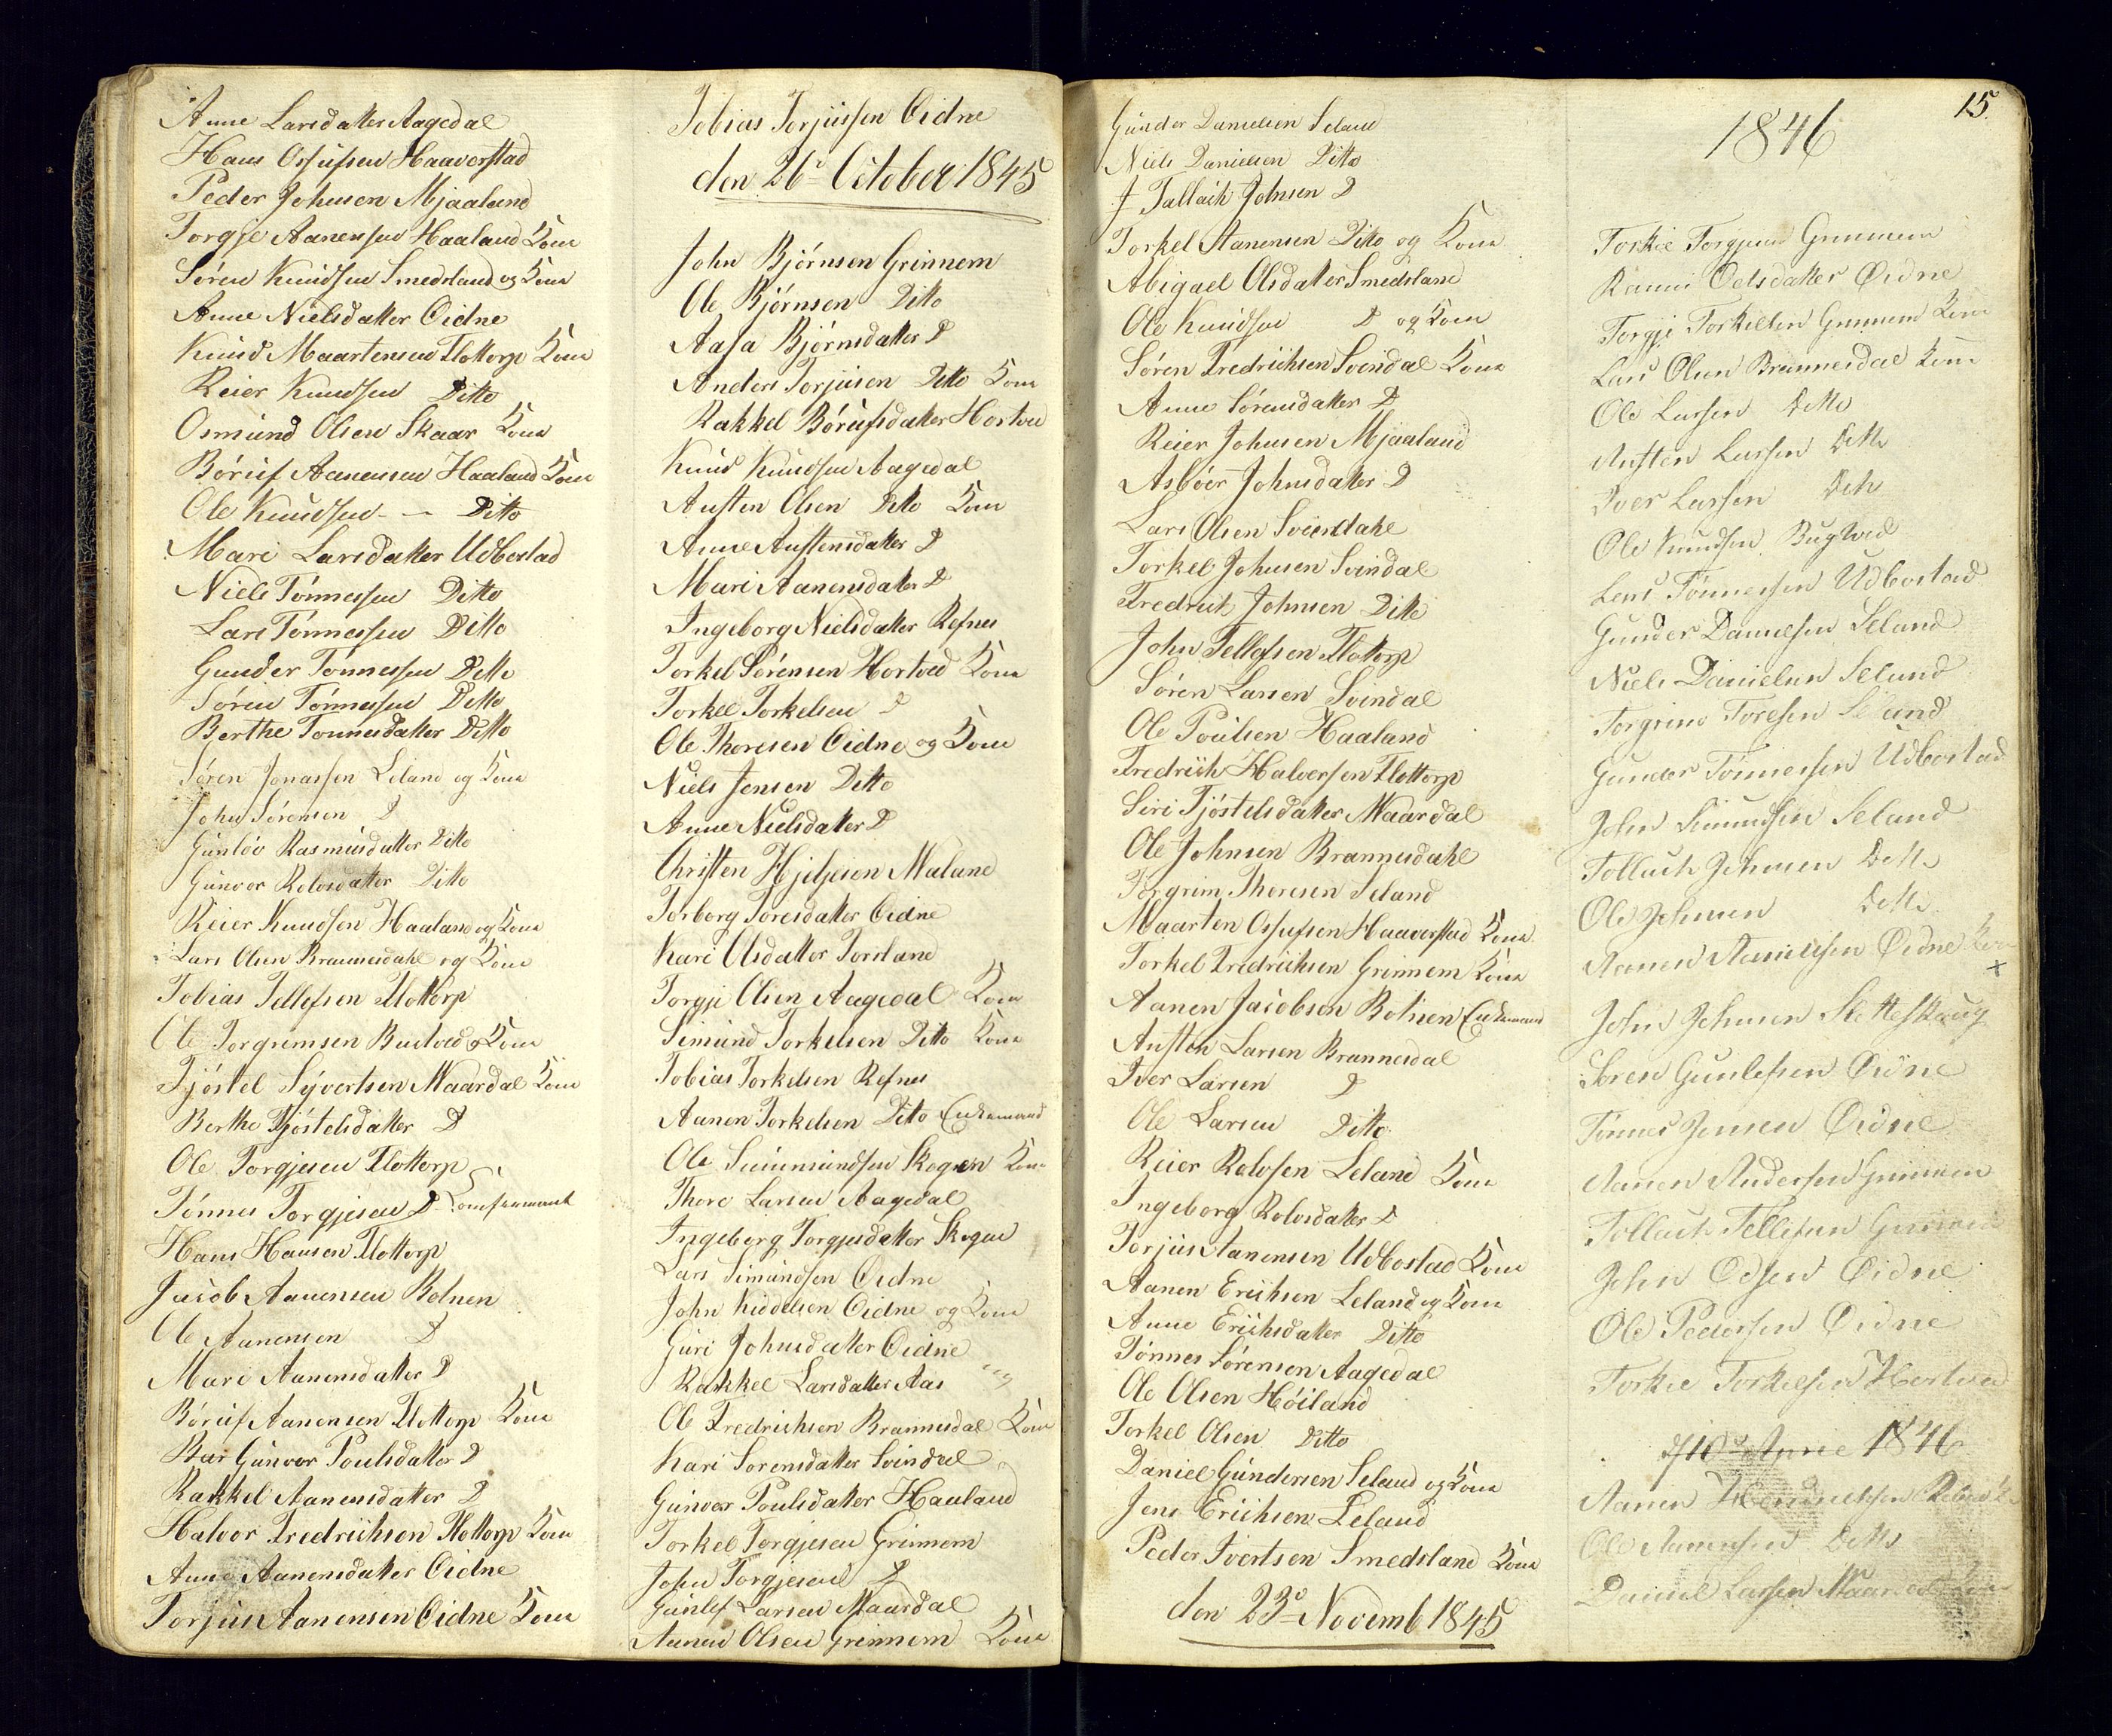 Anne Larsdatter Aagedal
Hans Osufsen Haaverstad
Peder Johnsen Mjaaland
Torgje Aanensen Haaland Kone
Søren Knudsen Smedsland og Kone
Anne Nielsdatter Oidne
Knud Maartensen Flottorp Kone
Reier Knudsen Ditto
Osmund Olsen Skaar Kone
Børuf Aanensen Haaland Kone
Ole Knudsen - - Ditto
Mari Larsdatter Udbostad
Niels Tønnessen Ditto
Lars Tønnessen Ditto
Gunder Tønnessen Ditto
Søren Tønnessen Ditto
Berthe Tønnesdatter Ditto
Søren Jonassen Leland og Kone
John Sørensen D
Gunløv Rasmusdatter Ditto
Gunvor Rolvsdatter Ditto
Reier Knudsen Haaland og Kone
Lars Olsen Brannesdahl og Kone
Tobias Tellefsen Flottorp
Ole Torgrimsen Bustved og Kone
Tjøstel Syvertsen Maardal Kone
Berthe Tjøstelsdatter D
Ole Torgjesen Flottorp
Tønnes Torgjesen D Comfermant
Hans Hansen Flottorp
Jacob Aanensen Rolnen
Ole Aanensen D
Mari Aanensdatter D
Børuf Aanensen Flottorp Kone
Gunvor Poulsdatter D
Rakkel Aanensdatter D
Halvor Fredrichsen Flottorp Kone
Anne Aanensdatter Oidne
Torjus Aanensen Oidne Kone
Tobias Torjussen Oidne
den 26de October 1845
John Bjørnsen Grinnem
Ole Bjørnsen Ditto
Aasa Bjørnsdatter D
Anders Torjusen Ditto Kone
Rakkel Børufsdatter Hortve
Knud Knudsen Aagedal
Austen Olsen Ditto Kone
Anne Austensdatter D
Mari Aanensdatter D
Ingeborg Nielsdatter Refnes
Torkel Sørensen Hortved Kone
Torkel Torkelsen D
Ole Thoresen Oidne og Kone
Niels Jensen Ditto
Anne Nielsdatter D
Christen Hjeljesen Maland
Torborg Toresdatter Oidne
Kari Olsdatter Torsland
Torgje Olsen Aagedal Kone
Simund Torkelsen Ditto Kone
Tobias Torkelsen Refnes
Aanen Torkelsen Ditto Enkemand
Ole Simmundsen Skogen Kone
Thore Larsen Aagedal
Ingeborg Torgjesdatter Skogen
Lars Simundsen Oidne
John Kiddelsen Oidne og Kone
Guri Johnsdatter Oidne
Rakkel Larsdatter Aas
Ole Fredrichsen Brannesdal Kone
Kari Sørensdatter Svindal
Gunvor Poulsdatter Haaland
Torkel Torgjesen Grinnem
John Torgjesen D
Gunlef Larsen Maardal
Aanen Olsen Grinnem Kone
Gunder Danielsen Seland
Niels Danielsen Ditto
Tallack Johnsen D
Torkel Aanensen Ditto og Kone
Abigael Olsdatter Smedsland
Ole Knudsen D og Kone
Søren Fredrichsen Svindal Kone
Anne Sørensdatter D
Reier Johnsen Mjaaland
Asbøer Johnsdatter D
Lars Olsen Sviendahl
Torkel Johnsen Svindal
Fredrich Johnsen Ditto
John Tellefsen Flottorp
Søren Larsen Svindal
Ole Poulsen Haaland
Fredrich Halversen Flottorp
Siri Tjøstelsdatter Maardal
Ole Johnsen Brannesdahl
Torgrim Thoresen Seland
Maarten Osufsen Haaverstad Kone
Torkel Fredrichsen Grinnem Kone
Aanen Jacobsen Rolnen Enkemand
Austen Larsen Brannesdal
Iver Larsen D
Ole Larsen Ditto
Reier Rolvsen Leland Kone
Ingeborg Rolvsdatter D
Torjus Aanensen Udbostad Kone
Aanen Erichsen Leland og Kone
Anne Erichsdatter Ditto
Tønnes Sørensen Aagedal
Ole Olsen Høiland
Torkel Olsen Ditto
Daniel Gundersen Seland og Kone
Jens Erichsen Leland
Peder Ivertsen Smedsland Kone
den 23de Novemb 1845
15.
1846
Torkel Torgjesen Grinnem
Ranni Oelsdatter Øidne
Torgje Torkelsen Grinnem Kone
Lars Olsen Brannesdal Kone
Ole Larsen Ditto
Austen Larsen Ditto
Iver Larsen Ditto
Ole Knudsen
Lars Tønnessen Udbostad
Gunder Danielsen Seland
Niels Danielsen Seland
Torgrim Toresen Seland
Gunder Tønnessen Udbostad
John Simundsen Seland
Tollack Johnsen Ditto
Ole Johnsen Ditto
Aanen Øidne Kone
x
John Johnsen
Søren Gunlefsen Øidne
Tønnes Jensen Øidne
Aanen Andersen Grinnem
Tollack Tellefsen Grinnem
John Odsen Øidne
Ole Pedersen Øidne
Torkel Torkelsen Hortved
1846
Aanen
Ole Aanensen Ditto
Daniel Larsen Maardal